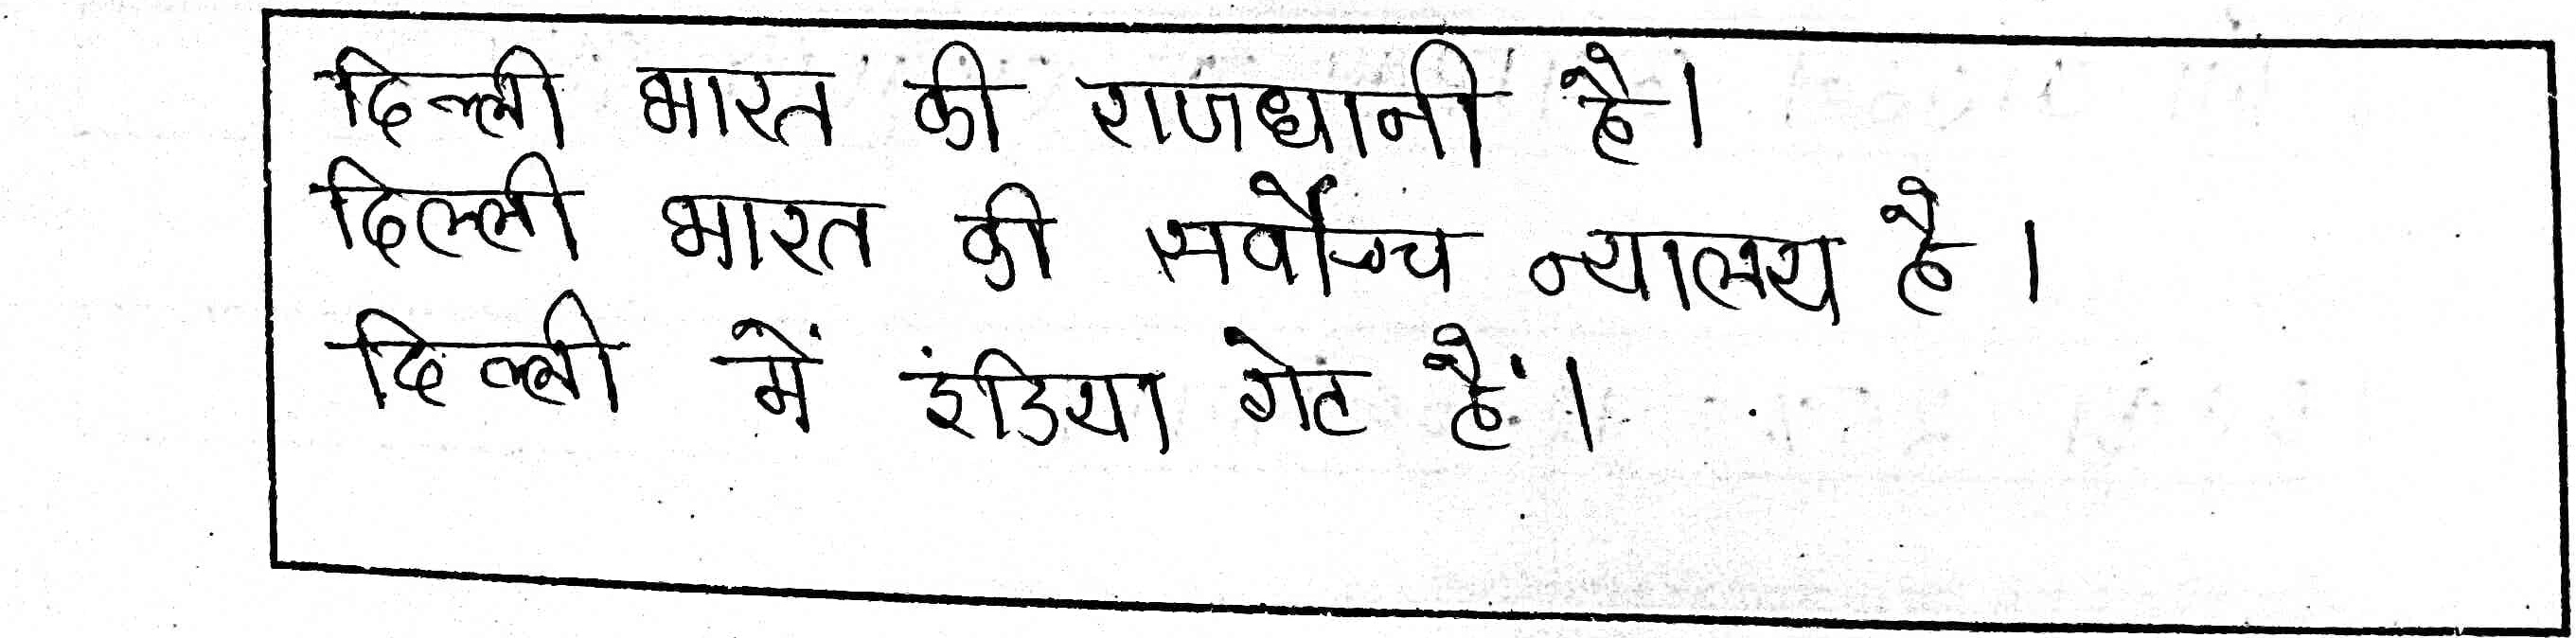 दिल्ली भारत की राजधानी है।
दिल्ली भारत की सर्वोच्च न्यालय है।
दिल्ली में इंडिया गेट हैं।